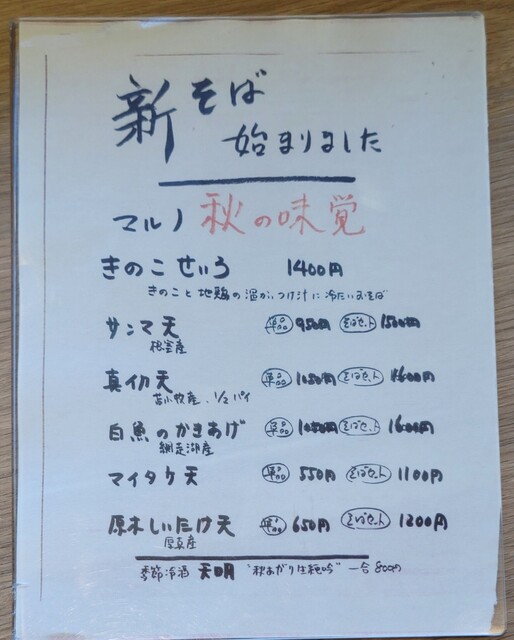 新そば
始まりました
マルノ 秋の味覚
きのこせいろ 1400円
きのこと地鶏の温かいつけ汁に冷たいおそば
サンマ天 単品 950円 そばセット 1500円
根室産
真イカ天 単品 1050円 そばセット 1600円
苫小牧産、1/2パイ
白魚のかきあげ 単品 1050円 そばセット 1600円
網走湖産
マイタケ天 単品 550円 そばセット 1100円
原木しいたけ天 単品 650円 そばセット 1200円
厚真産
季節冷酒 天明 "秋あがり生純吟" 一合 800円